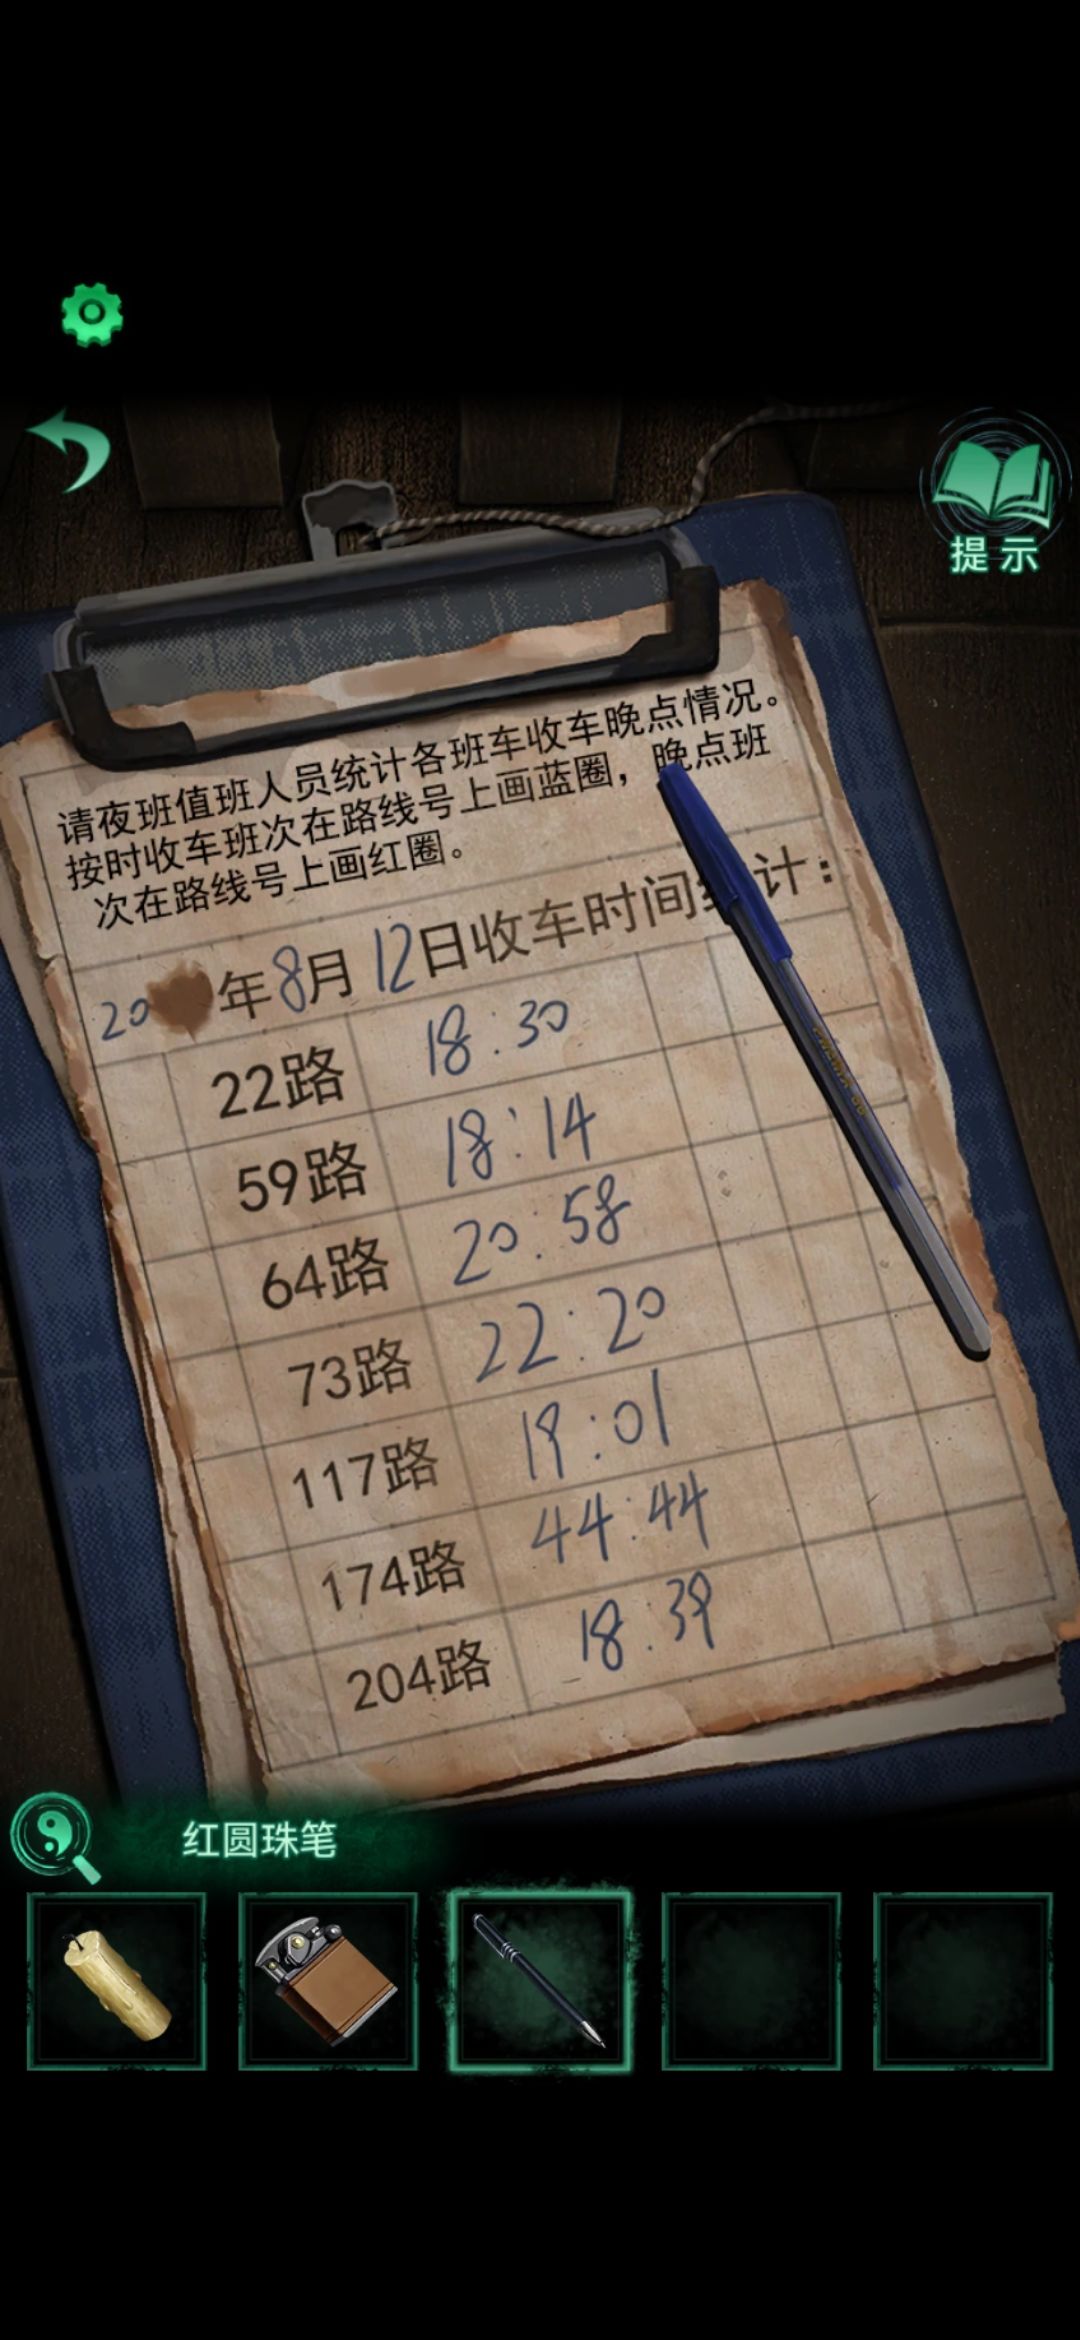 提示
请夜班值班人员统计各班车收车晚点情况。
按时收车班次在路线号上画蓝圈，晚点班
次在路线号上画红圈。
20 年8月12日收车时间 计：
22路 18:30
59路 18:14
64路 20:58
73路 22:20
117路 19:01
174路 44:44
204路 18:39
红圆珠笔